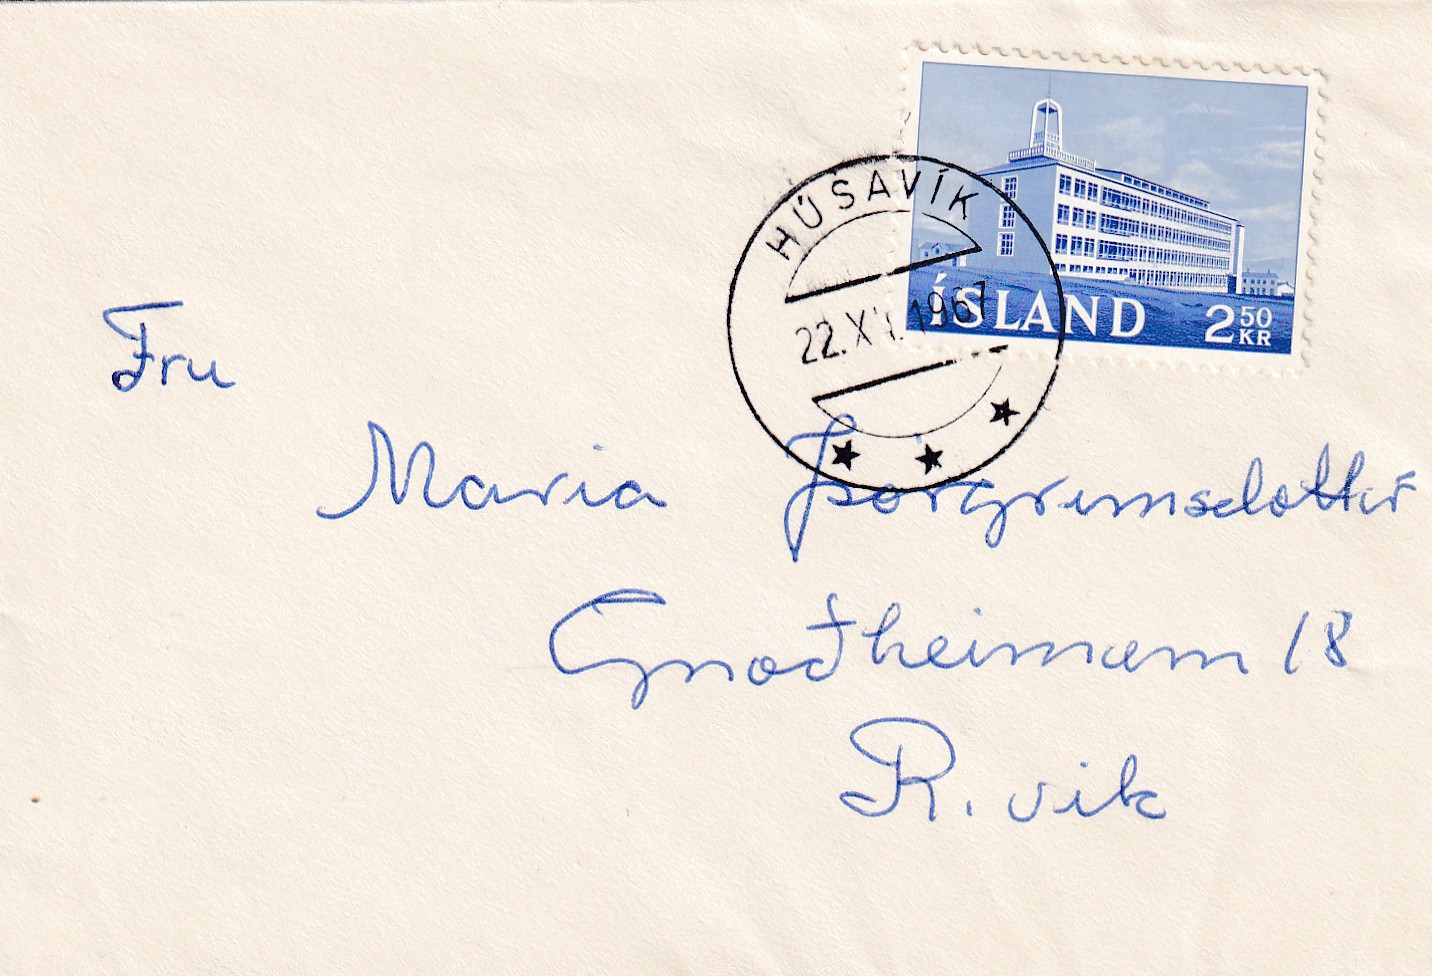 HÚSAVÍK
22.X 1967
ÍSLAND 2 50 KR
Fru
Maria Þórgrimsdottir
Gnoðheimum 18
R.vik